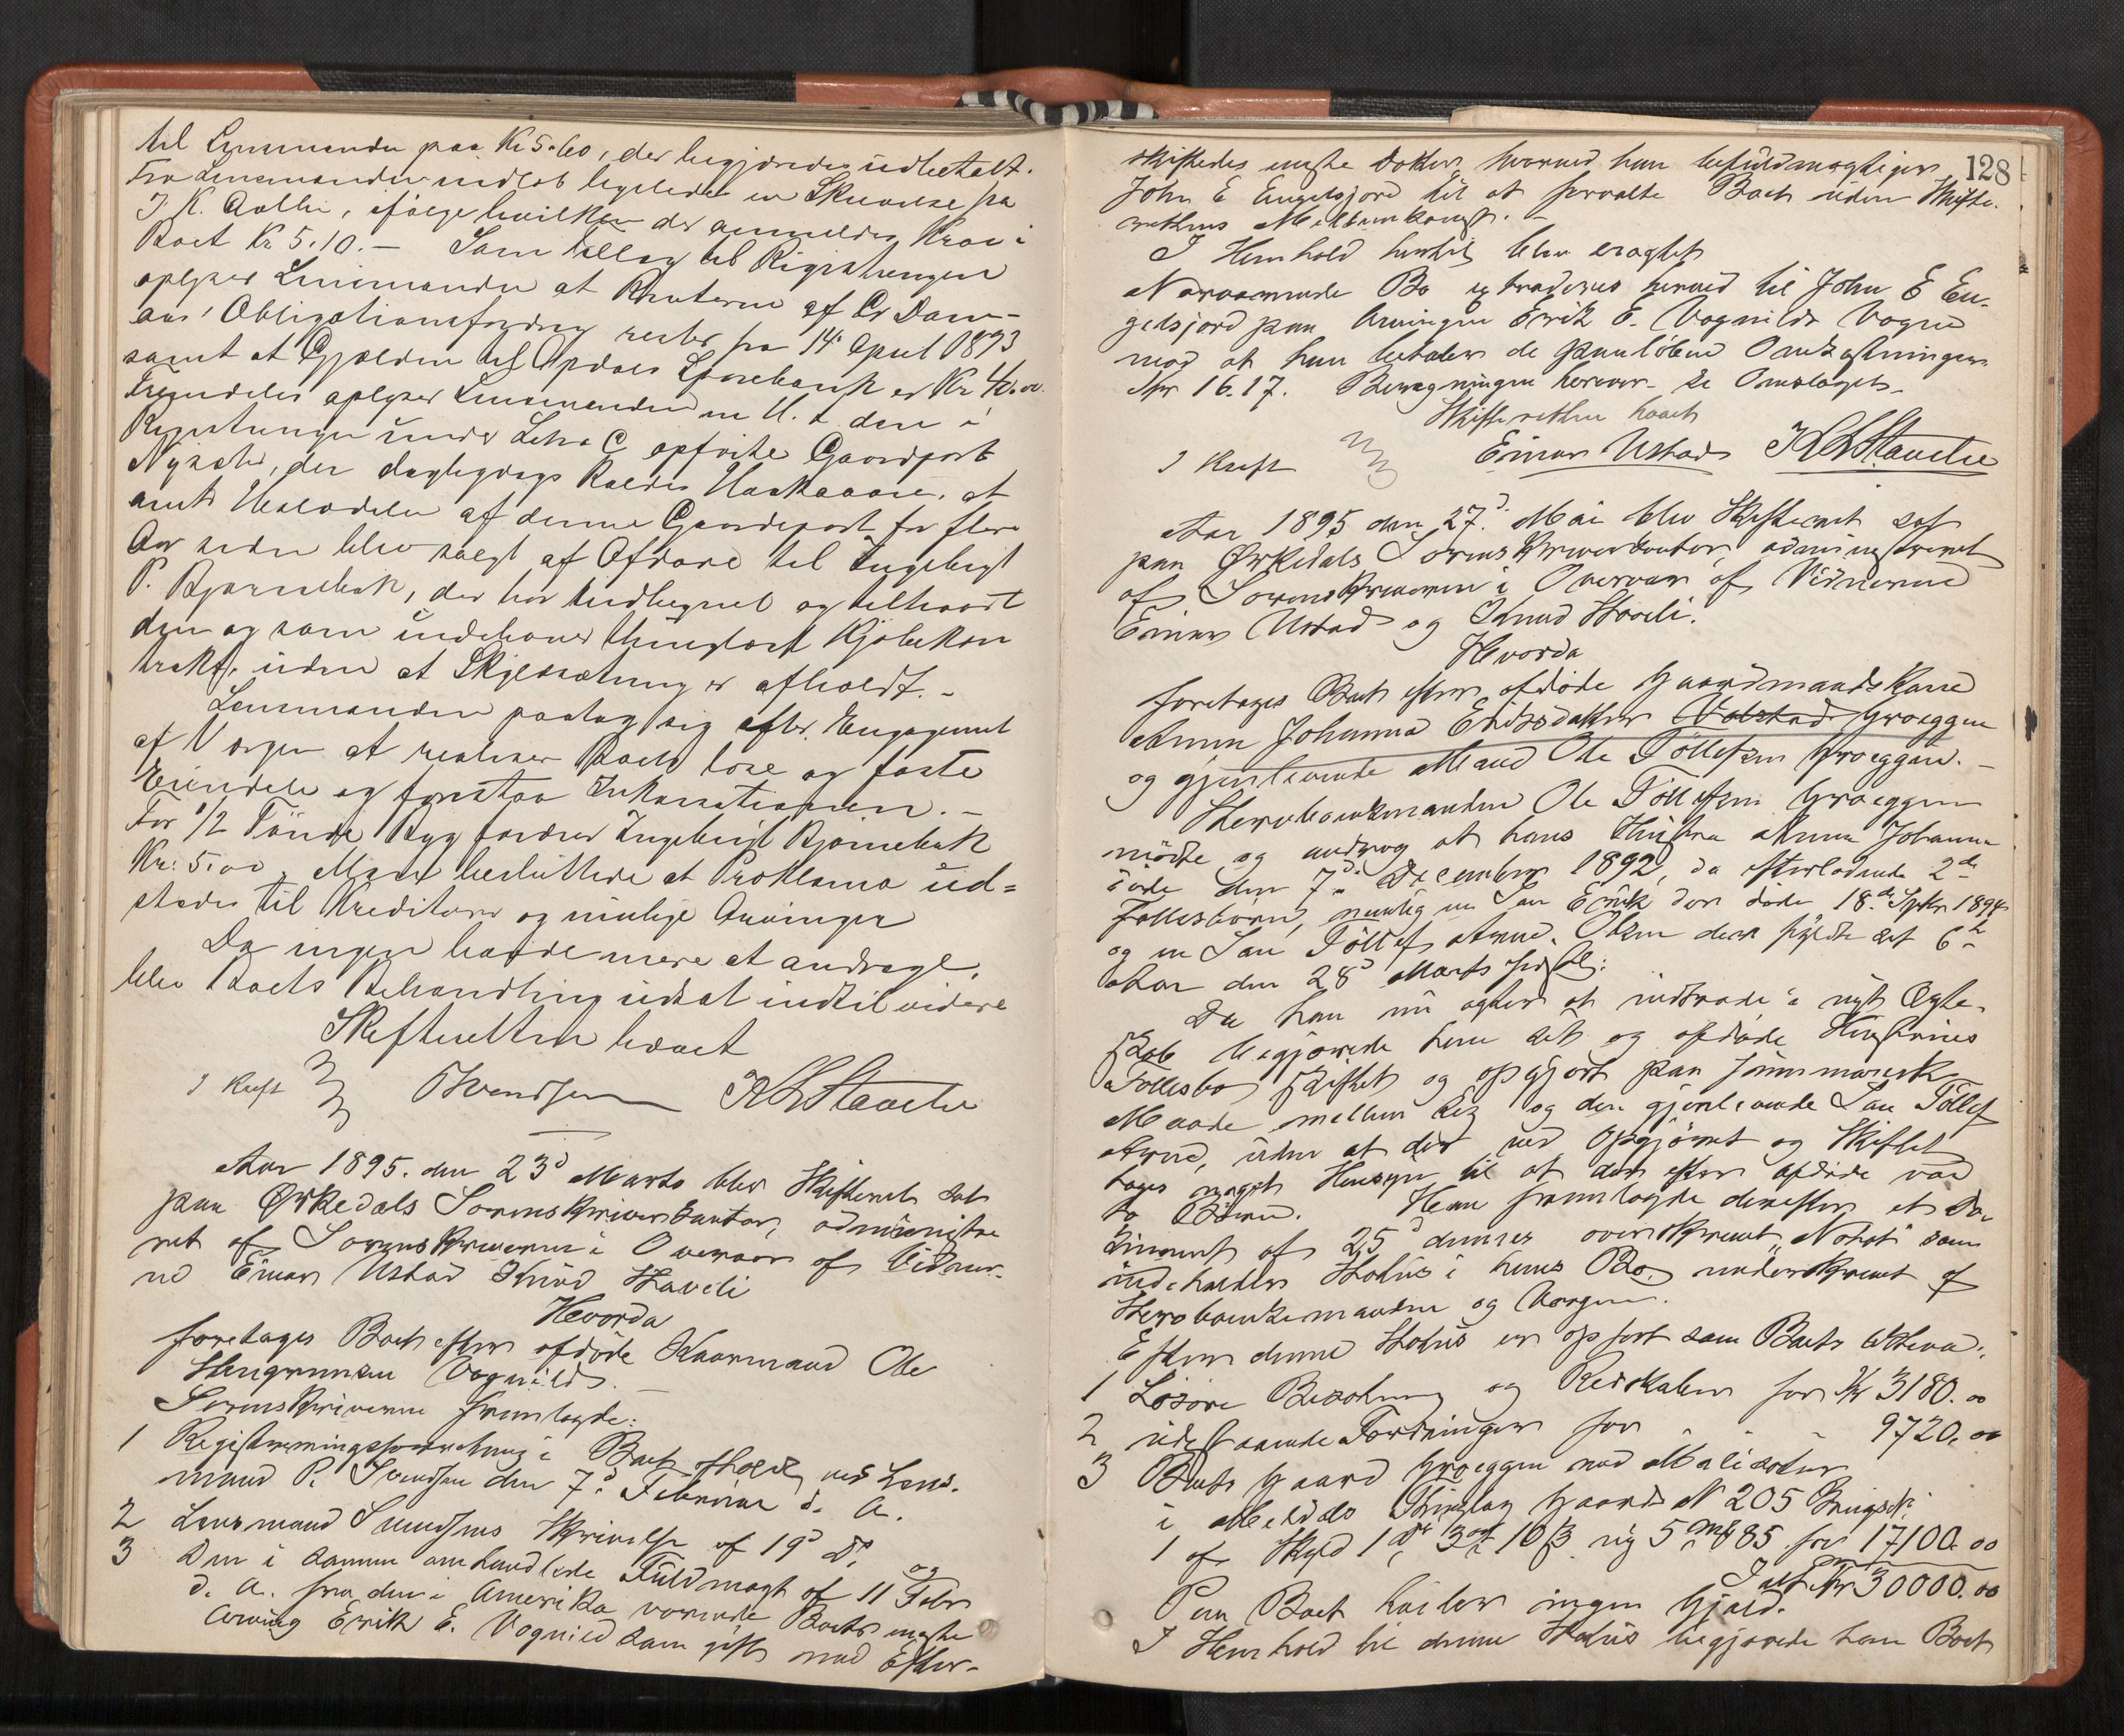 til Lensmanden paa Kr 5.60, der begjæredes udbetalt.
Fra Lensmanden indløb ligeledes en Skrivelse fra
I K. Aalbu, ifølge hvilken der anmeldes Krav i
Boet Kr 5.10.— Som Tillæg til Registreringen
oplyser Lensmanden at Renterne af
Obligationsfordring rester fra 14 April 1893
samt at Gjælden til Opdals Sparebank er Kr 40.00.
Fremdeles oplyser Lensmanden m. V. a den i
Registreringen under Litra C opførte Gaardpart
Nysæter, der dagligdags kaldes Haakaaren, at
af denne Gaardepart for flere
Aar siden blev solgt af Afdøde til Ingebrigt
P. Bjørnebæk, der har indhegnet og
den og som indehaver thinglæst Kjøbekon
trakt, uden at Skjøldsætning er afholdt.-
Lensmanden paatog sig efter Engagement
af Vergen at realisere Boets løse og faste
Eiendele og forestaa Inkassationen.-
For 1/2 Tønde Byg fordrer Ingebrigt Bjørnebæk
Kr: 5.00. Man besluttede at Proklama ud=
stedes til Kreditorer og mulige Arvinger
Da ingen havde mere at andrage,
blev Boets Behandling udsat indtil videre
Skifteretten hævet
I Kraft PSvendsen K L Stavelie
Aar 1895. den 23d Marts blev Skifteret sat
paa Ørkedals Sorenskriverkontor, administre
ret af Sorenskriveren i Overvær af Vidner-
ne Einar Ustad Knud Staveli
Hvorda
foretages Boet efter afdøde Kaarmand Ole
Vognild. —
Sorenskriveren fremlagde:
1 Registreringsforretning i Boet afholdt ved Lens-
mand P. Svendsen den 7d Februar d. A.
2 Lensmand Svendsens Skrivelse af 19d Ds. og
3 Den i samme omhandlede Fuldmagt af 11 Febr
d. A. fra den i Amerika værende Boets eneste
Arving Erik E. Vognild som gift med Efter-
128
skiftedes eneste Datter, hvorved han befuldmægtiger
John E Engelsjord til at forvalte Boet uden Skifte-
rettens Mellemkomst. -
I Henhold hertil blev eragtet
Nærværende Bo extraderes herved til John E En-
gelsjord paa Arvingen Erik E. Vognilds Vegne
mod at han betaler de paaløbne Omkostninger
Kr 16.17. Beregningen herover se Omslaget.
Skifteretten hævet
I Kraft Einar Ustad K L Stavelie
Aar 1895 den 27d Mai blev Skifteret sat
paa Ørkedals Sorenskriverkontor, administreret
af Sorenskriveren i Overvær af Vidnerne
Einar Ustad og Knud Staveli.
Hvorda
foretages Boet efter afdøde Gaardmandskone
Anne Johanna Eriksdatter Volstad Groeggen
og gjenlevende Mand Ole Tøllefsen Groeggen. —
Stervboenkemanden Ole Tøllefsen Groeggen
mødte og androg at hans Hustru Anne Johanna
døde den 7d December 1892, da efterladende 2de
Fællesbørn, nemlig en Søn Erik der døde 18de Septbr 1894
og en Søn Tøllef Arne Olsen der fyldte sit 6te
Aar den 28d Marts sidstl:
Da han nu agter at indtræde i nyt Ægte-
skab begjærede han sit og afdøde Hustrues
Fællesbo skiftet og opgjort paa summarisk
Maade mellem sig og den gjenlevende Søn Tøllef
Arne, uden at der ved Opgjøret og Skiftet
tages noget Hensyn til at der efter afdøde var
to Børn. Han fremlagde derefter et Do-
kument af 25d dennes overskrevet „Notat" som
indeholder Status i hans Bo, underskrevet af
Stervboenkemanden og Vergen.
Efter denne Status er opført som Boets Aktiva:
1 Løsøre Besætning og Redskaber for Kr 3180.00
2 udestaaende Fordringer for " 9720.00
3 Boets Gaard Groeggen med
i Meldals Thinglag Gaards N 205 Brugs N:
1 af Skyld 1 D 3 Ort 10 ß ny 5 Mk 85 for 17100.00
Ialt Kr 30000.00
Paa Boet hviler ingen Gjæld.
I Henhold til denne Status begjærede han Boet